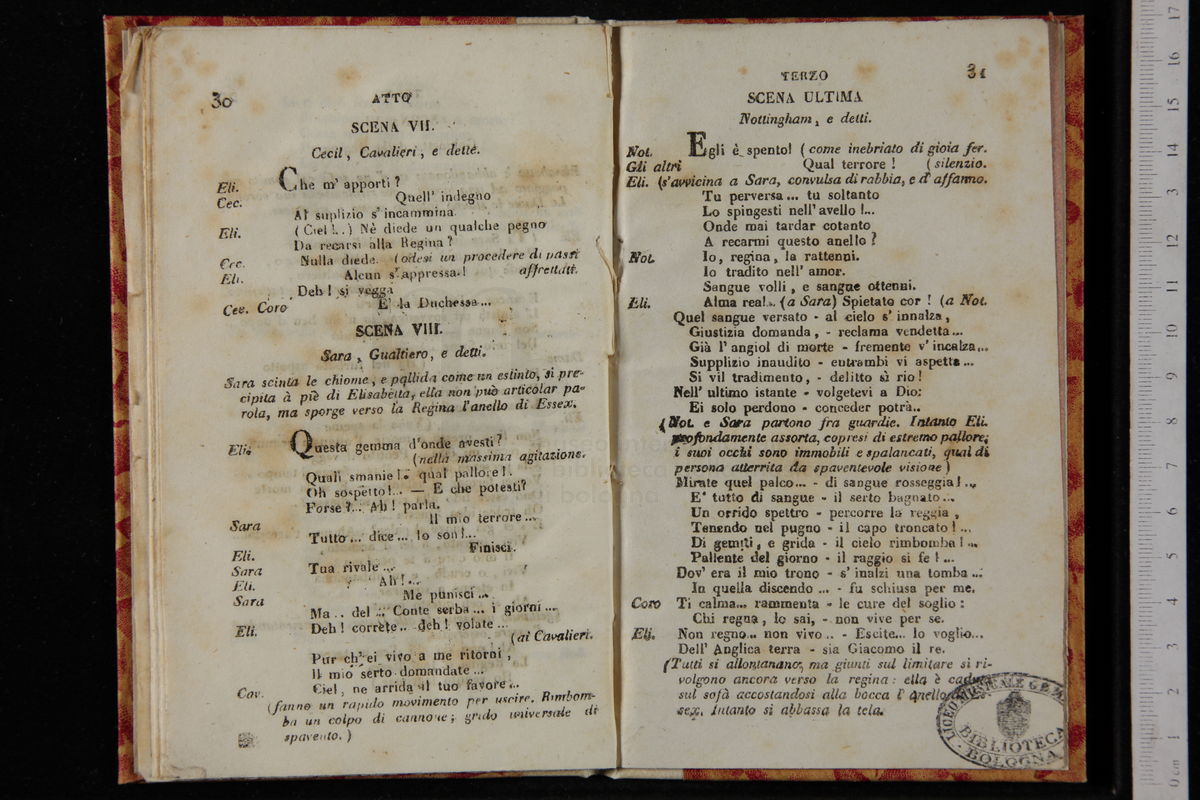 30
ATTO
SCENA VII.
Cecil, Cavalieri, e dette.
Che m' apporti?
Eli.
Quell' indegno
Cec.
Al suplizio s' incammina.
Eli. (Ciel!..) Nè diede un qualche pegno
Da recarsi alla Regina?
Cec. Nulla diede. (odesi un procedere di passi
Eli. Alcun s' appressa! affrettati.
Deh! si vegga
Cec. Coro E' la Duchessa...
SCENA VIII.
Sara, Gualtiero, e detti.
Sara scinta le chiome, e pallida come un estinto, si pre-
cipita à piè di Elisabetta, ella non può articolar pa-
rola, ma sporge verso la Regina l'anello di Essex.
Eli. Questa gemma d'onde avesti?
(nella massima agitazione.
Quali smanie!. qual pallore!.
Oh sospetto!... — E che potesti?
Forse?.. Ah! parla.
Sara Il mio terrore...
Tutto... dice... Io son!...
Eli. Finisci.
Sara Tua rivale...
Eli. Ah!...
Sara Me punisci...
Ma.. del... Conte serba... i giorni...
Eli. Deh! corrète.. deh! volate...
(ai Cavalieri.
Pur ch' ei vivo a me ritorni,
Il mio serto domandate...
Cav. Ciel, ne arrida il tuo favore...
(fanno un rapido movimento per uscire. Rimbom-
ba un colpo di cannone; grido universale di
spavento.)
TERZO
31
SCENA ULTIMA
Nottingham, e detti.
Not. Egli è spento! (come inebriato di gioia fer.
Gli altri Qual terrore! (silenzio.
Eli. (s'avvicina a Sara, convulsa di rabbia, e d' affanno.
Tu perversa... tu soltanto
Lo spingesti nell' avello!...
Onde mai tardar cotanto
A recarmi questo anello?
Not. Io, regina, la rattenni.
Io tradito nell' amor.
Sangue volli, e sangue ottenni.
Eli. Alma rea!.. (a Sara) Spietato cor! (a Not.
Quel sangue versato - al cielo s' innalza,
Giustizia domanda, - reclama vendetta...
Già l' angiol di morte - fremente v' incalza...
Supplizio inaudito - entrambi vi aspetta...
Si vil tradimento, - delitto sì rio!
Nell' ultimo istante - volgetevi a Dio;
Ei solo perdono - conceder potrà..
(Not. e Sara partono fra guardie. Intanto Eli.
profondamente assorta, copresi di estremo pallore;
i suoi occhi sono immobili e spalancati, qual di
persona atterrita da spaventevole visione)
Mirate quel palco... - di sangue rosseggia!...
E' tutto di sangue - il serto bagnato...
Un orrido spettro - percorre la reggia,
Tenendo nel pugno - il capo troncato!...
Di gemiti, e grida - il cielo rimbomba!...
Pallente del giorno - il raggio si fe!...
Dov' era il mio trono - s' inalzi una tomba...
In quella discendo... - fu schiusa per me.
Coro Ti calma... rammenta - le cure del soglio:
Chi regna, lo sai, - non vive per se.
Eli. Non regno... non vivo.. - Escite... Io voglio...
Dell' Anglica terra - sia Giacomo il re.
(Tutti si allontanano, ma giunti sul limitare si ri-
volgono ancora verso la regina: ella è caduta
sul sofà accostandosi alla bocca l' anello
sex. Intanto si abbassa la tela.
LICEO MUSICALE
BIBLIOTECA
BOLOGNA
0 cm 1 2 3 4 5 6 7 8 9 10 11 12 13 14 15 16 17